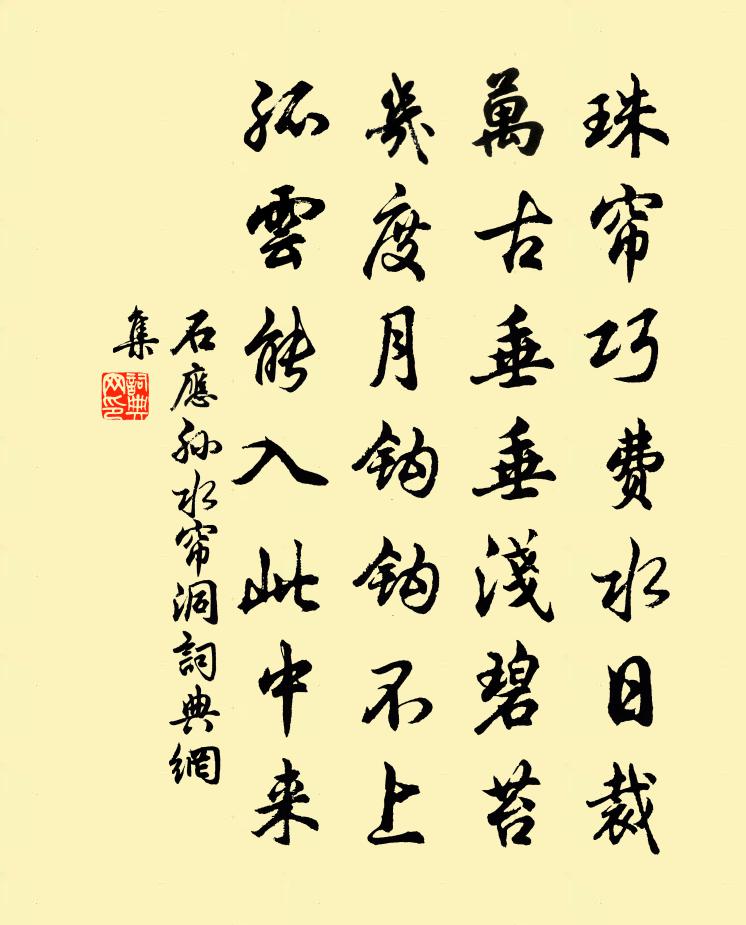 珠帘巧费水日裁
萬古垂垂淺碧苔
幾度月鈎鈎不上
孤雲能入此中来
石應孙水帘洞詞典網
集
詞典
网印